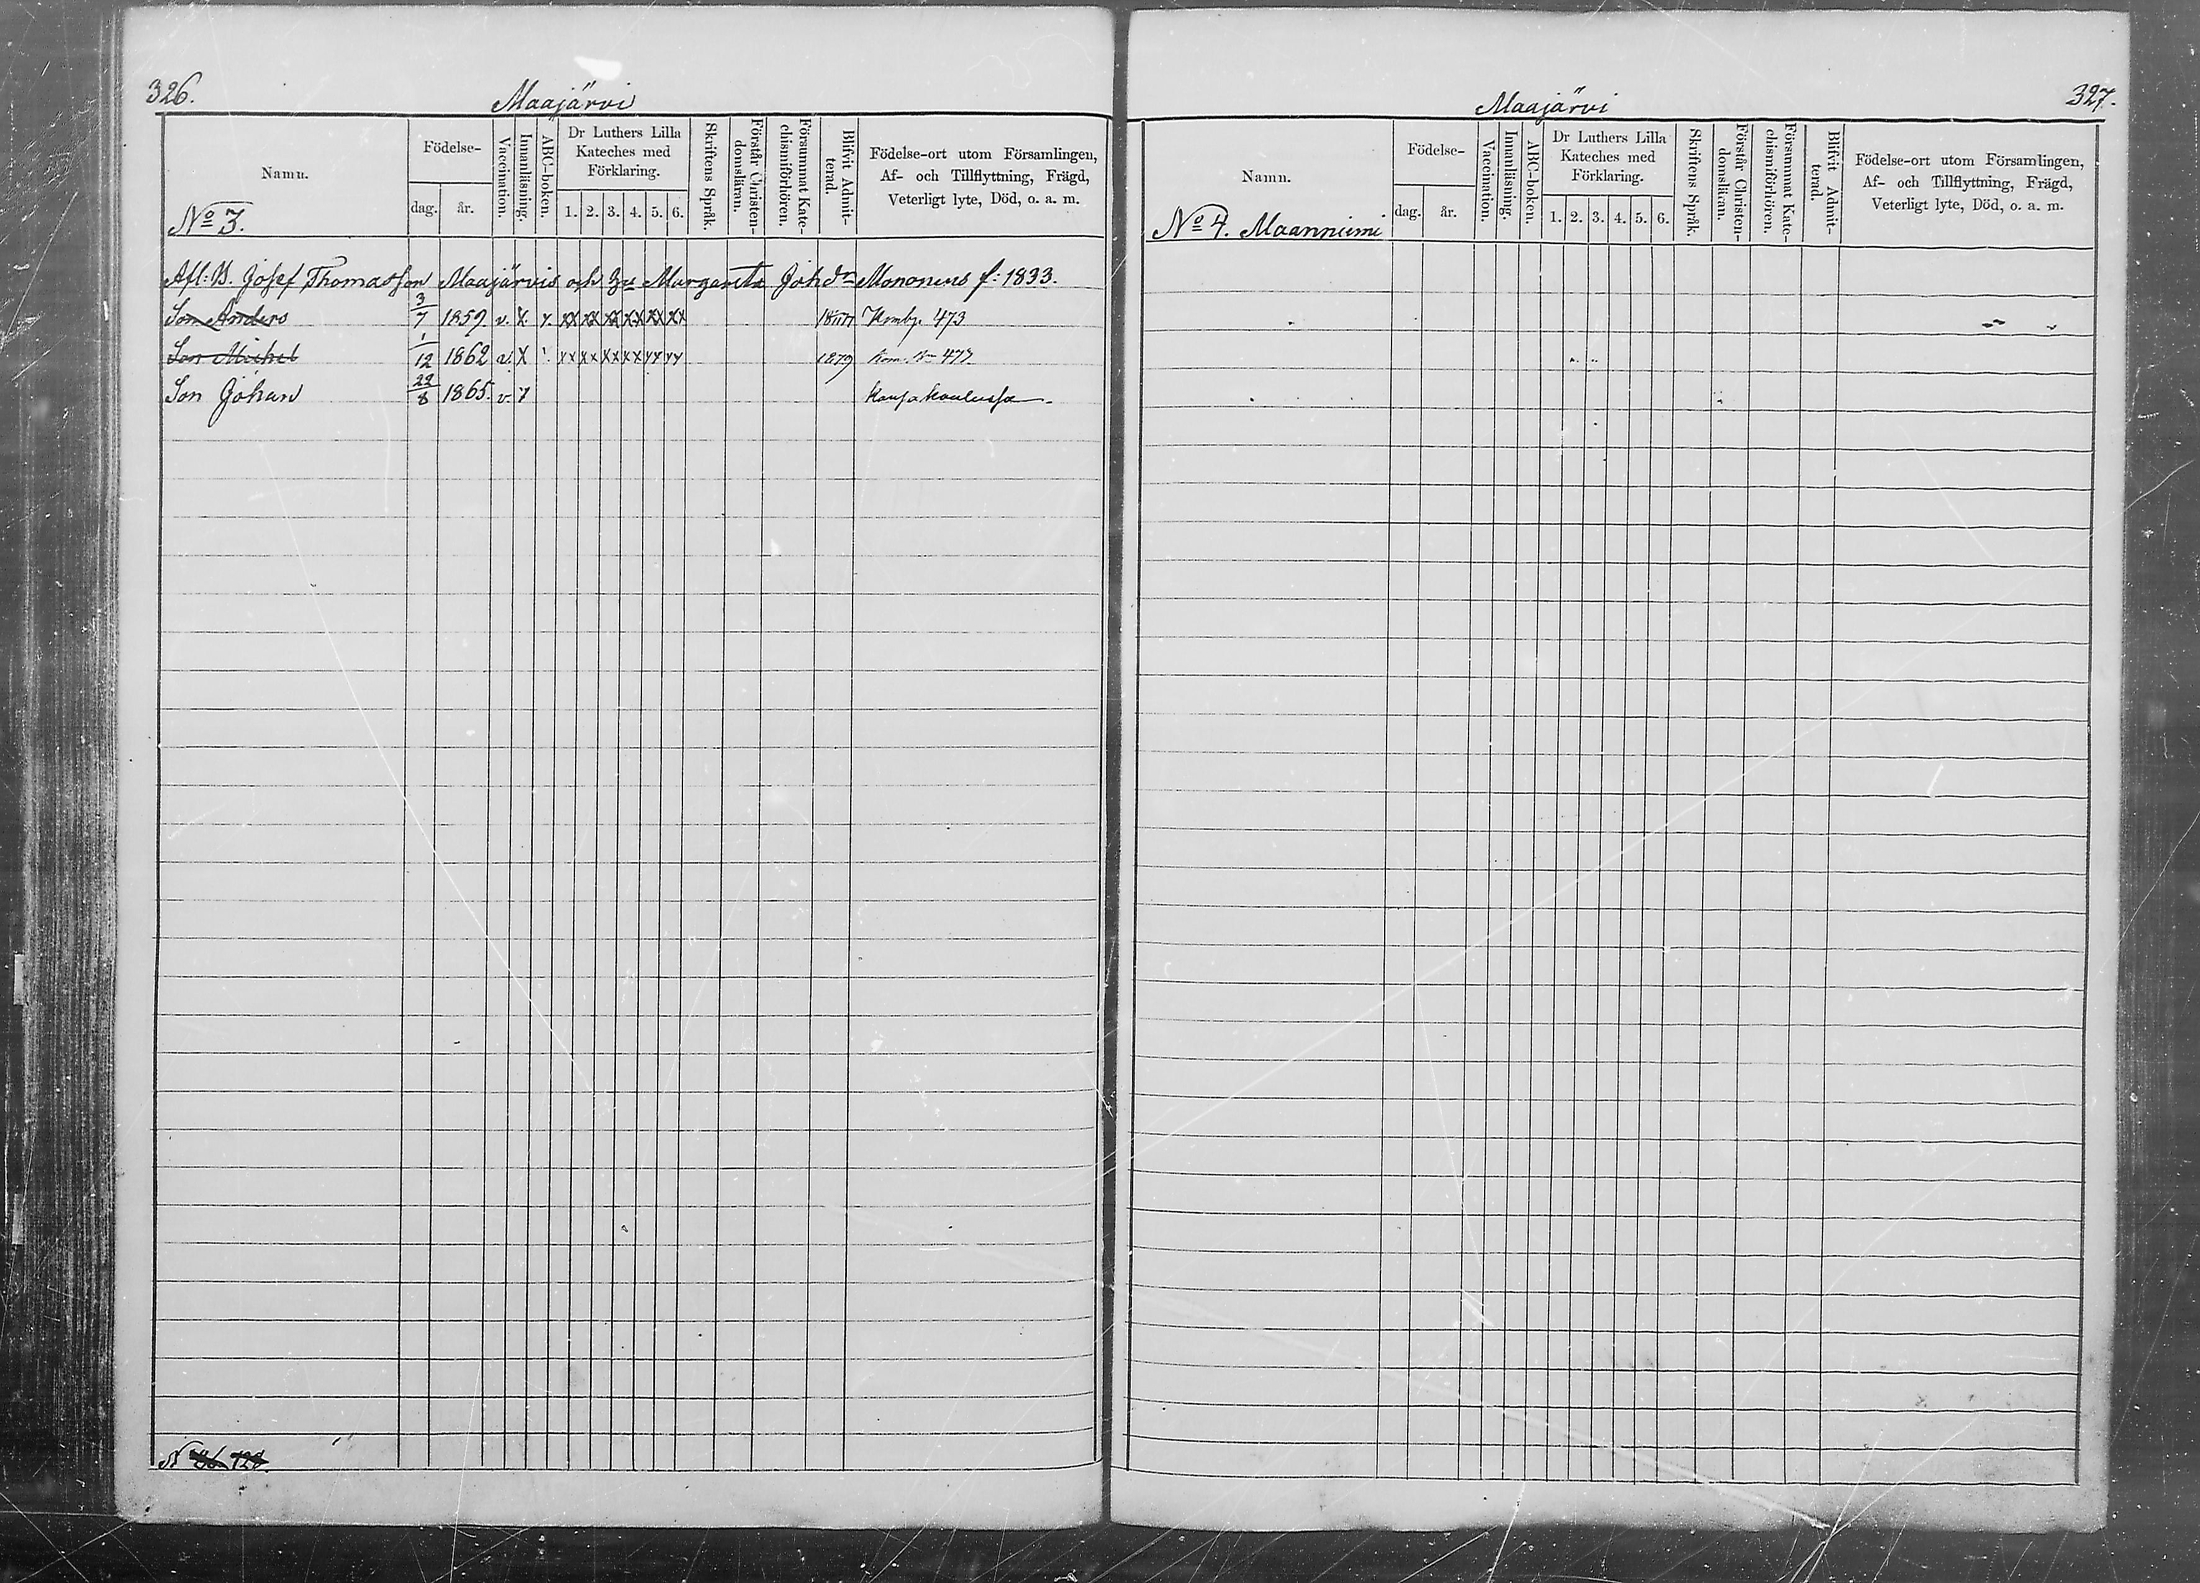 326.
Maajärvi
Namn.
Födelse-
dag.
år.
Vaccination.
Innanläsning.
ABC-boken.
Dr Luthers Lilla
Kateches med
Förklaring.
1. 2. 3. 4. 5. 6.
Skriftens Språk.
Förstår Christen-
domsläran.
Försummat Kate-
chismiförhören.
Blifvit Admit-
terad.
Födelse-ort utom Församlingen,
Af- och Tillflyttning, Frägd,
Veterligt lyte, Död, o. a. m.
No 3.
Afl: B. Josef Thomasson Maajärvis och Margareta Joh dr Mononens f: 1833.
Son Anders 3/7 1859 v. X xx xx xx xx xx xx 473
Son Michel 1/12 1862 v. X xx xx xx xx xx xx 1879 477
Son Johan 22/8 1865. v.
327.
Maajärvi
Namn.
Födelse-
dag.
år.
Vaccination.
Innanläsning.
ABC-boken.
Dr Luthers Lilla
Kateches med
Förklaring.
1. 2. 3. 4. 5. 6.
Skriftens Språk.
Förstår Christen-
domsläran.
Försummat Kate-
chismiförhören.
Blifvit Admit-
terad.
Födelse-ort utom Församlingen,
Af- och Tillflyttning, Frägd,
Veterligt lyte, Död, o. a. m.
No 4. Maanniemi